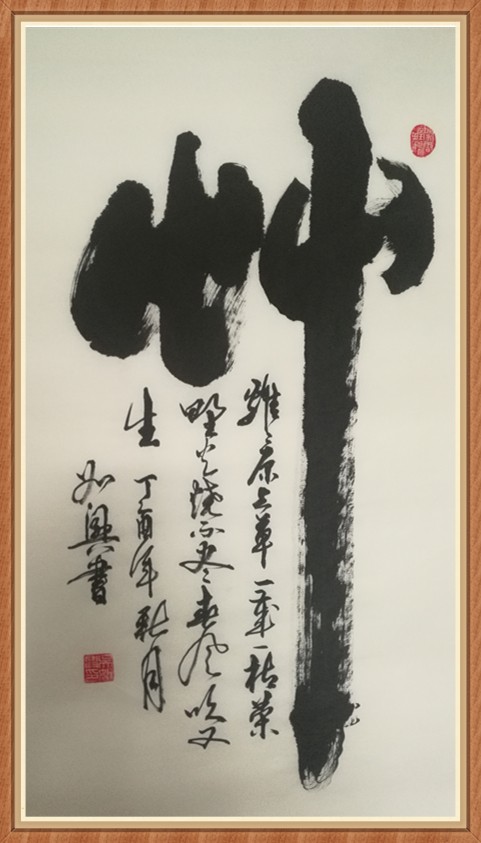 艸
離々原上草一歲一枯榮
野火燒不尽春風吹又
生 丁酉年秋月
如興書